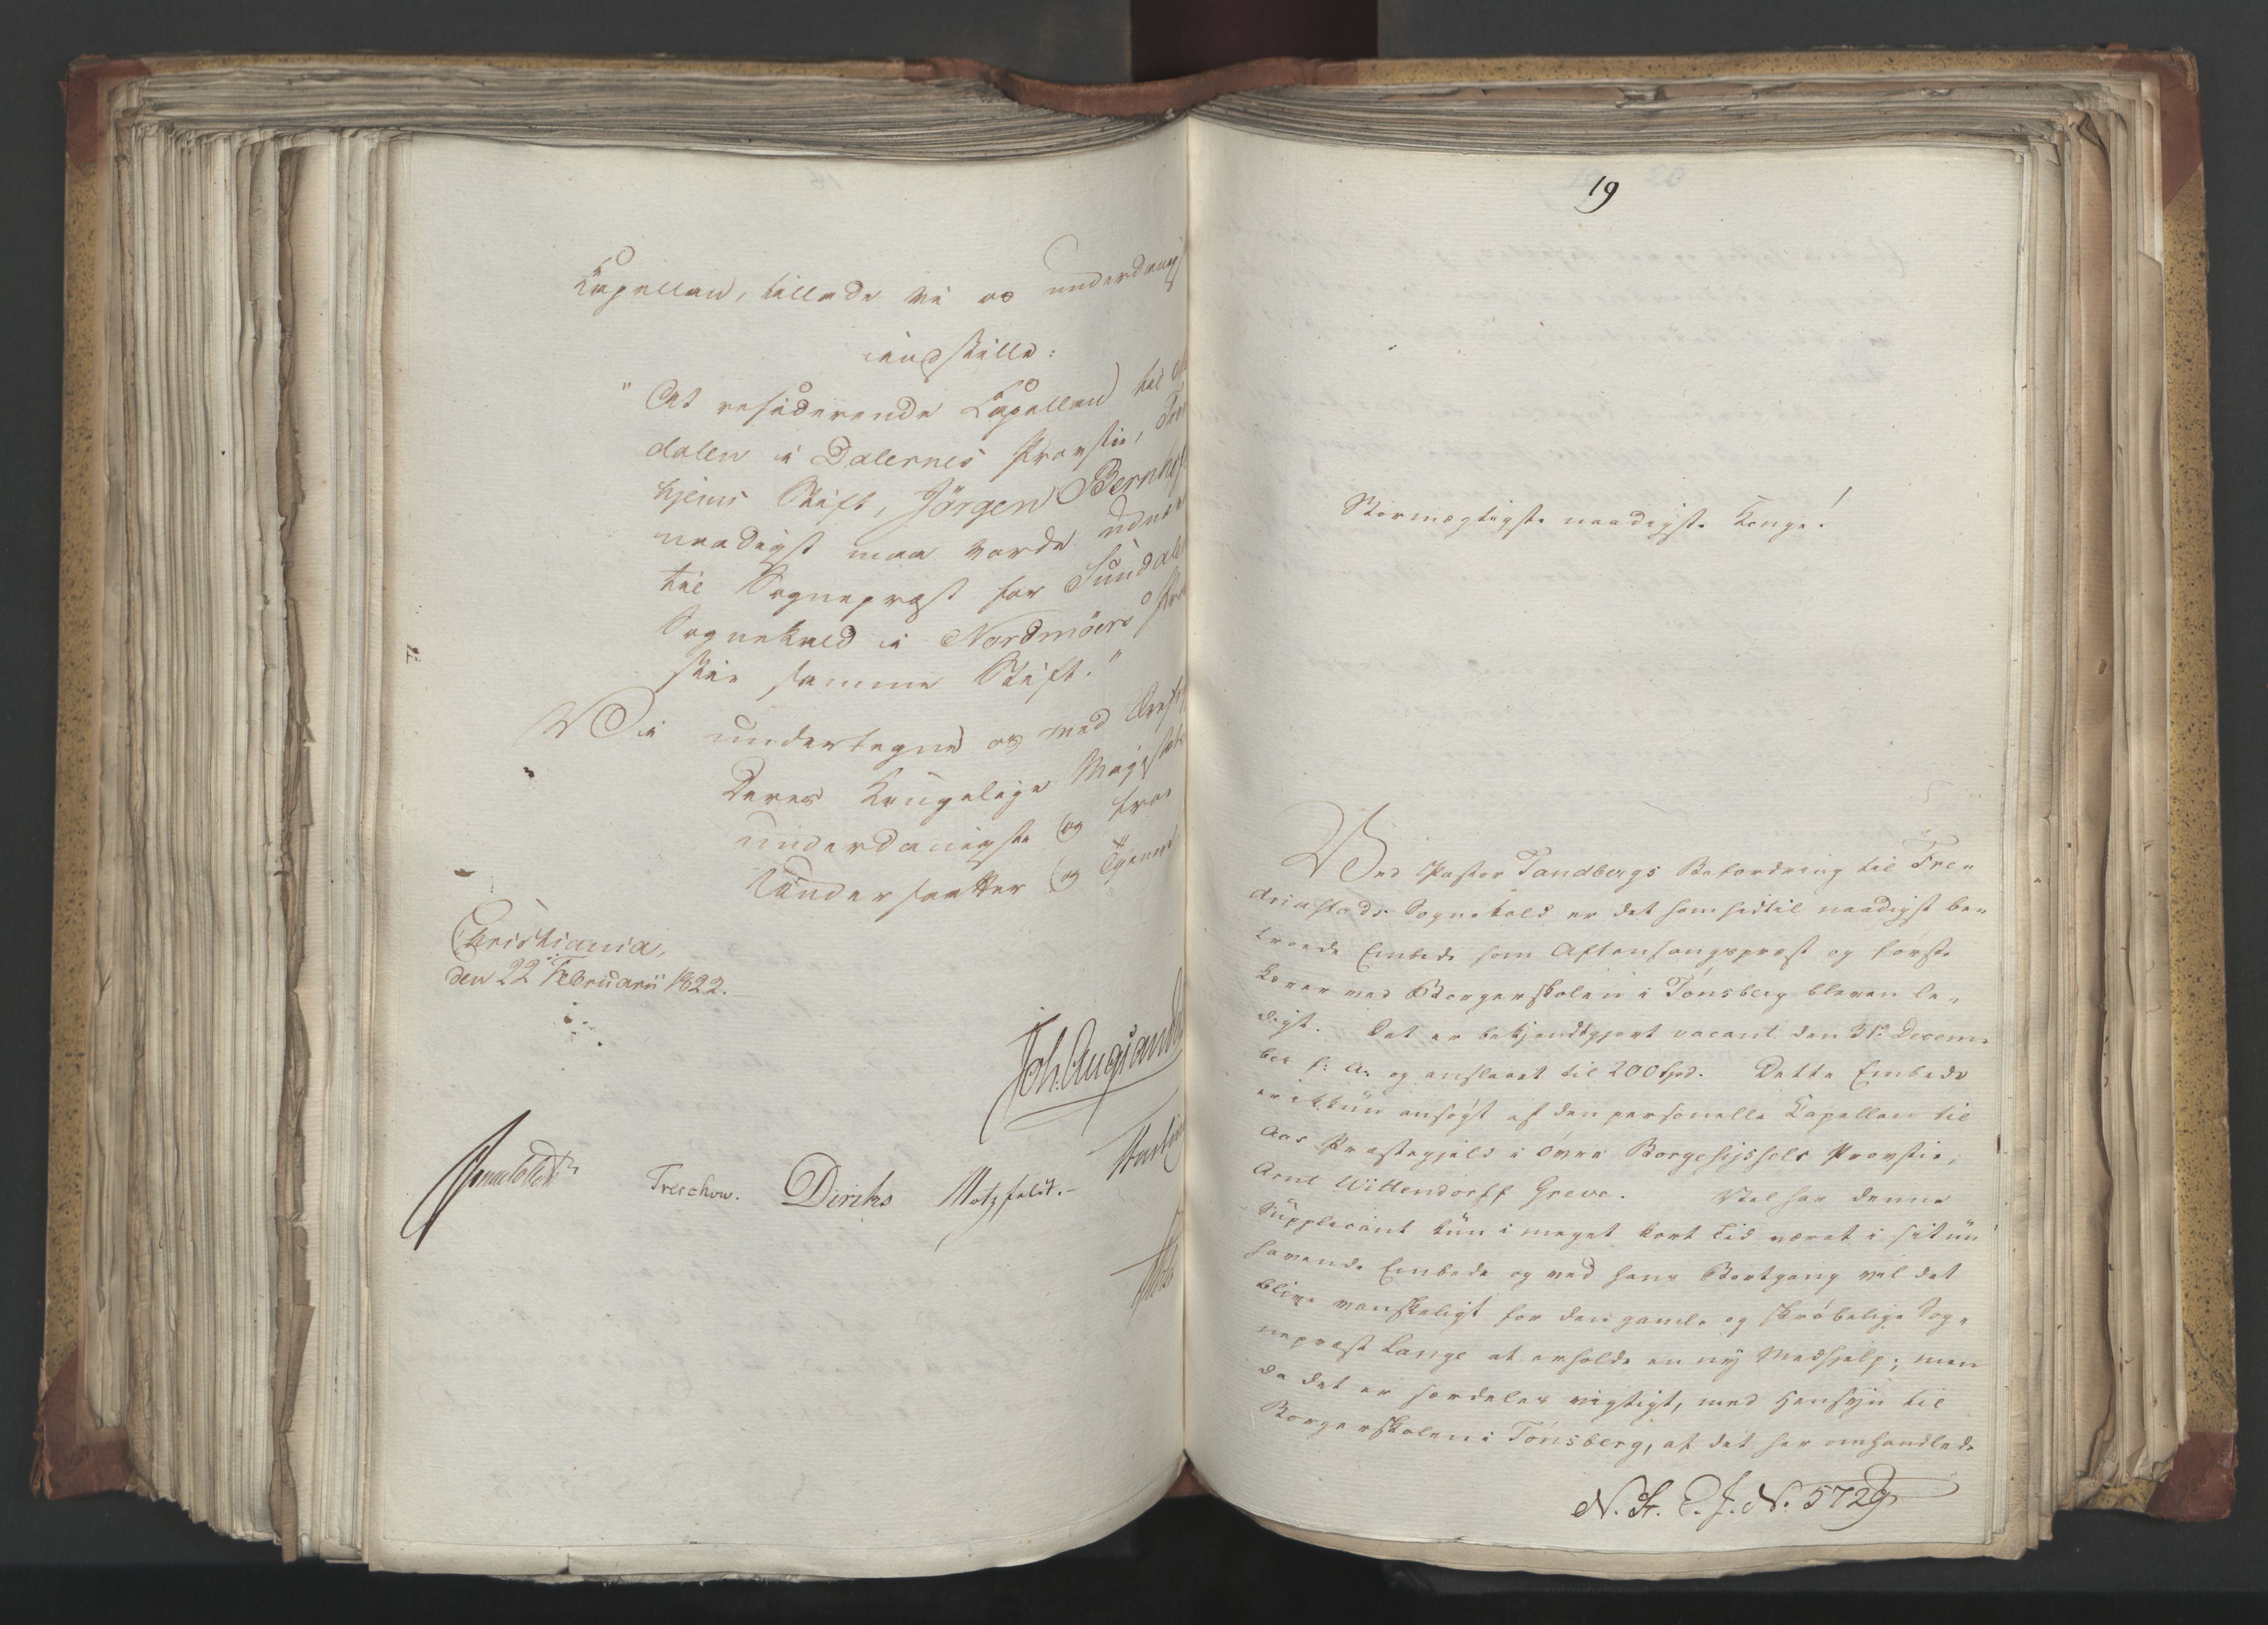 Capellan, tillade vi os underdanigst
indstille:
"At residerende Capellan til
dalen i Dalernes Provstie,
hjems Stift, Jörgen
naadigst maa vorde
til Sognepræst for Sundal
Sognekald i Nordmöers
stie samme Stift."
Vi undertegne os med
Deres Kongelige
underdanigste og troe
Undersaatter og Tjenere
Christiania,
den 22 Februarii 1822.
Treschow. Diriks Motzfeldt.
19
Stormægtigste naadigste Konge!
Ved Pastor Tandbergs Befordring til Fre-
drikstads Sognekald er det ham hidtil naadigst be-
troede Embede som Aftensangspræst og første
Lærer ved Borgerskolen i Tönsberg bleven le-
digt. Det er bekjendtgjort vacant den 31. Decem-
ber f. A. og anslaaet til 200 Spd. Dette Embede
er kun ansøgt af den personelle Capellan til
Aas Præstegjeld i Övre Borgesyssels Provstie,
Arnt Wittendorff Greve. Vel har denne
Supplicant kun i meget kort Tid været i sit nu
havende Embede og ved hans Bortgang vil det
blive vanskeligt for den gamle og skröbelige Sog-
nepræst Lange at erholde en ny Medhjelp; men
da det er særdeles vigtigt, med Hensyn til
Borgerskolen i Tönsberg, at det her omhandlede
N. 5729